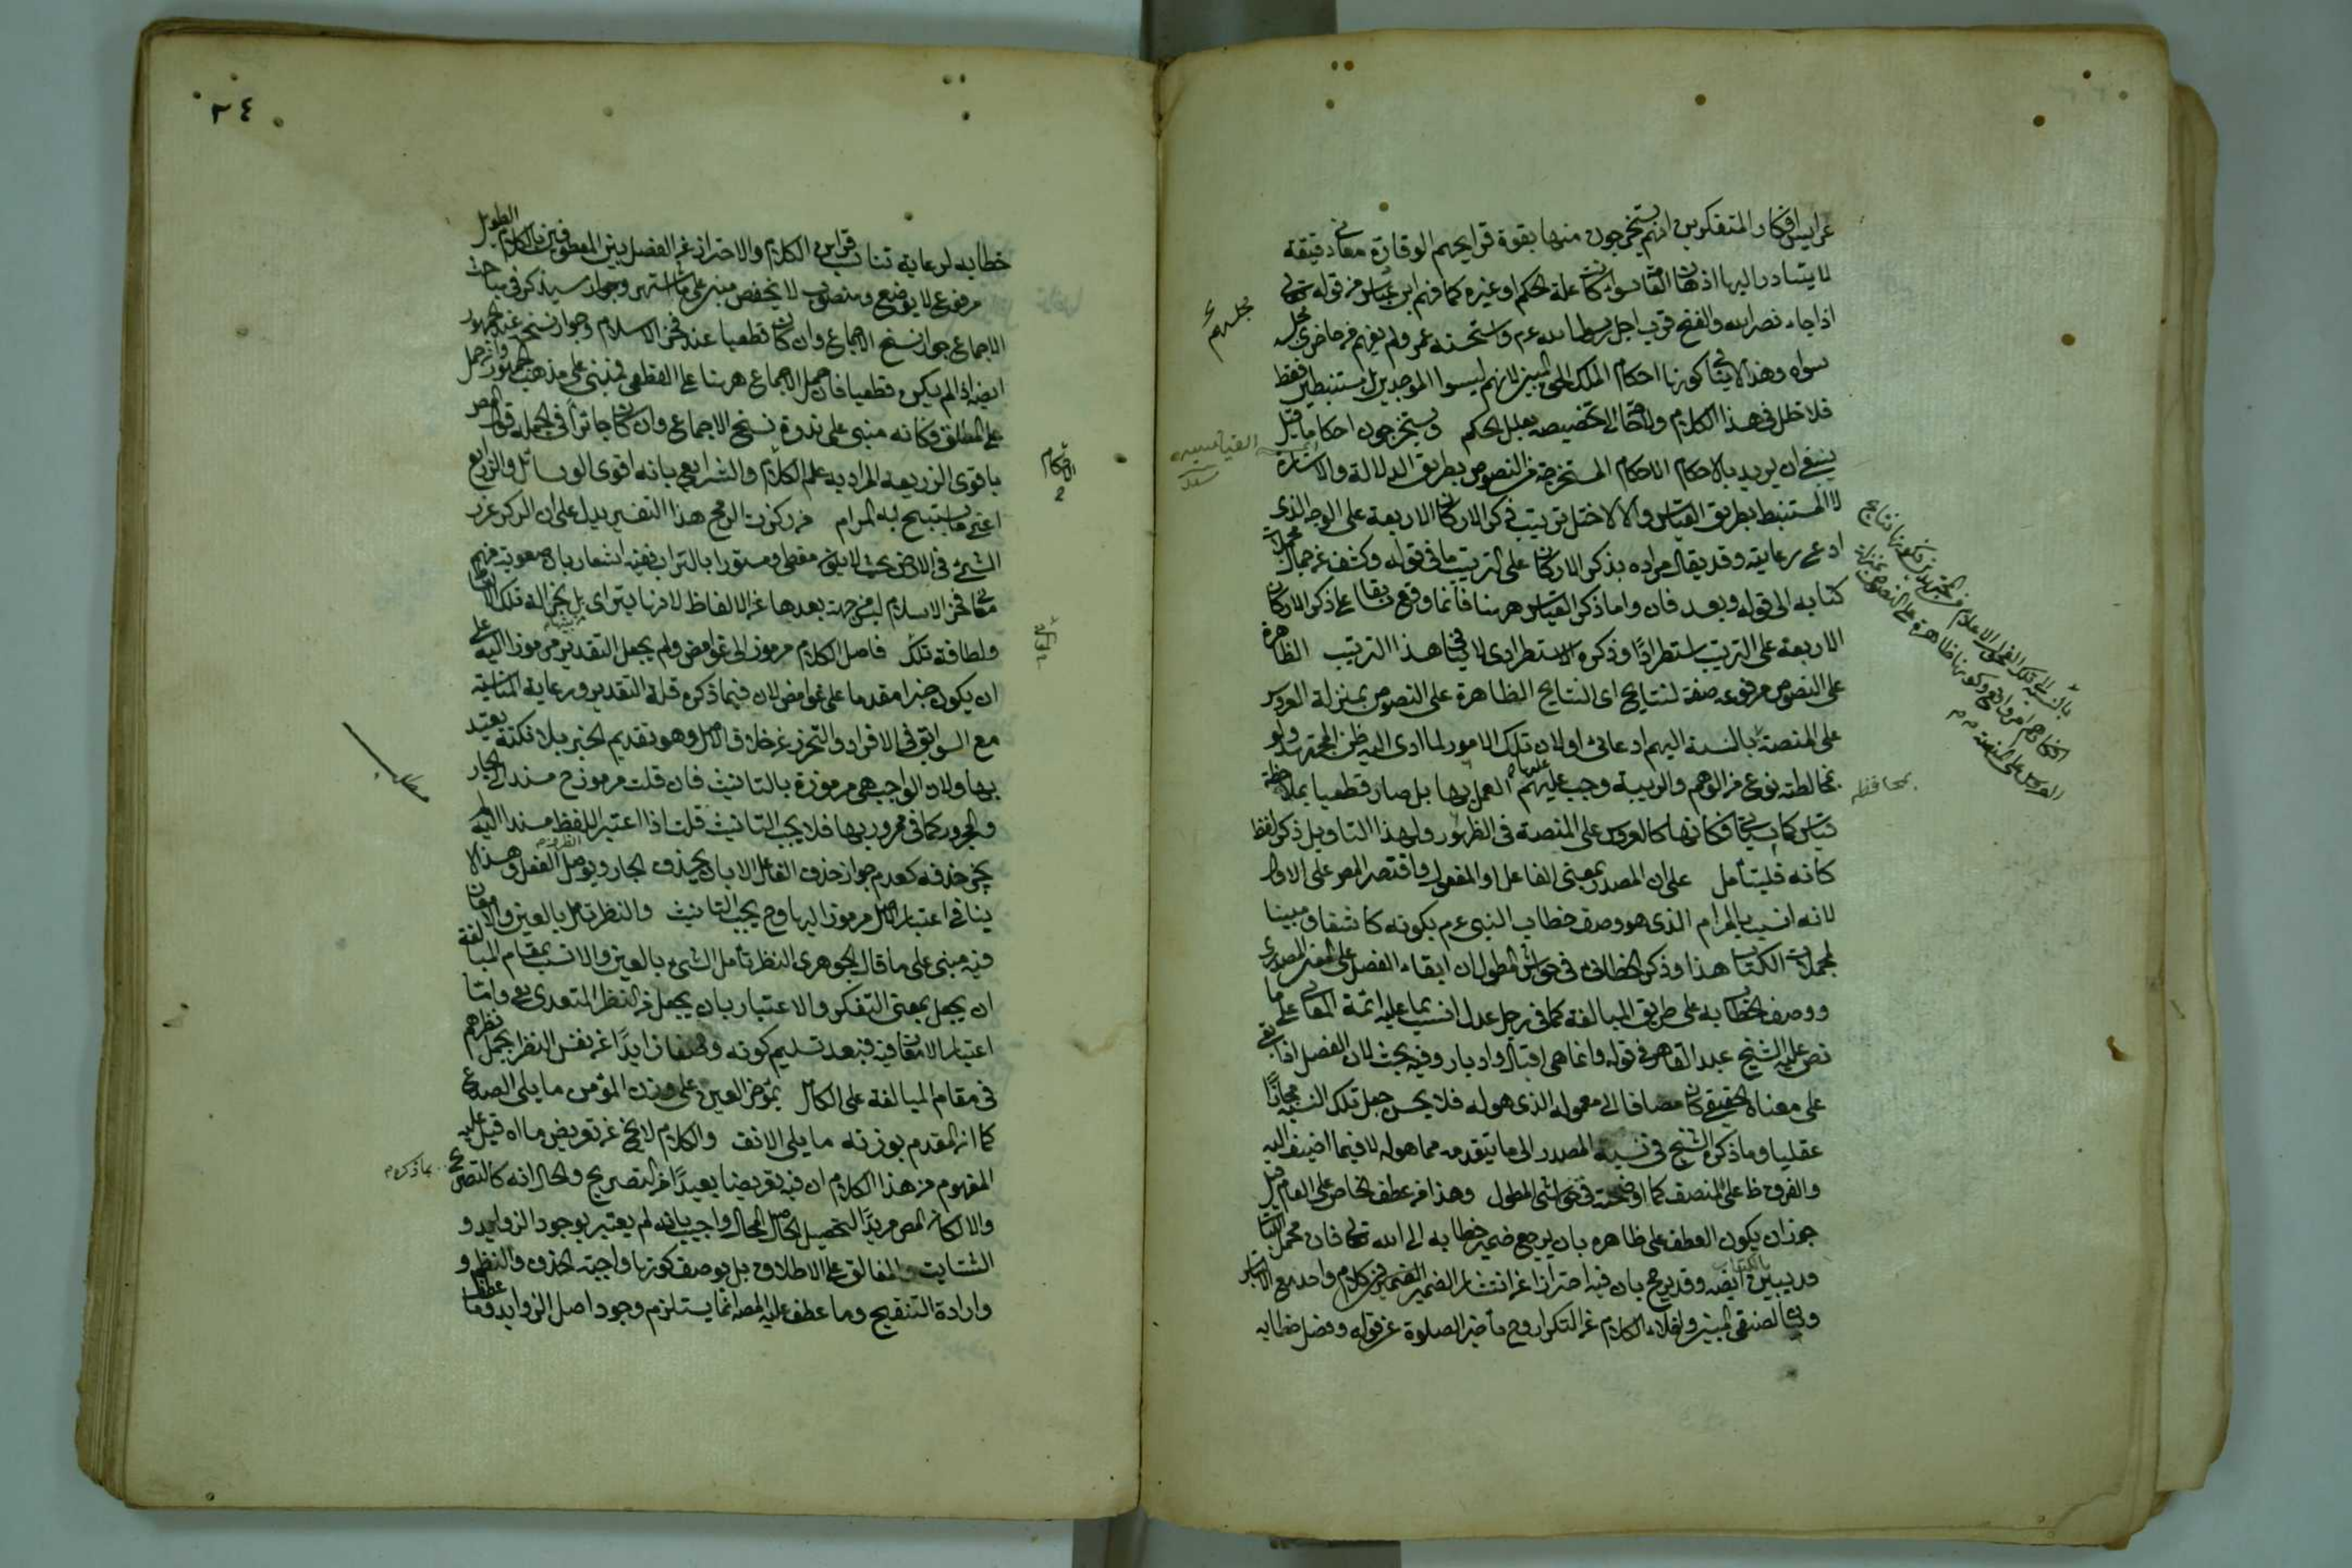 عرايس افكار المتفكرين انهم يستخرجون منها بقوة قرايحهم الوقادة معاني دقيقة
لا يتبادر اليها اذهان العامة سواء كان علة الحكم او غيره كما فهم ابن عباس من قوله تعالى
اذا جاء نصر الله والفتح قرب اجل رسول الله عم واستحسنه عمر ولم يفهم من حاضري مجلسه
سواه وهذا لا ينافي كونها احكام الملك الحق المبين لانهم ليسوا الموجدين بل مستنبطين فقط
فلا خلل في هذا الكلام ولا حاجة الى تخصيصه بعلل الحكم ويستخرجون احكاما قيل
ينبغي ان يريد بالاحكام الاحكام المستخرجة من النصوص بطريق الدلالة والاشارة
لا المستنبط بطريق القياس والا لاختل ترتيب ذكر الاركان الاربعة على الوجه الذي
ادعى رعايته وقد يقال مراده بذكر الاركان على الترتيب ما في قوله وكشف عن جمال مجملات
كتابه الى قوله وبعد فان واما ذكر القياس ههنا فانما وقع تبعا على ذكر الاركان
الاربعة على الترتيب استطرادا وذكره الاستطرادي لا ينافي هذا الترتيب الظاهرة
على النصوص مرفوعه صفة لنتايج اى النتايج الظاهرة على النصوص بمنزلة العروس
على المنصة بالنسبة اليهم ادعائي او لان تلك الامور لما ادى اليه ظن المجتهد ولو
بمخالطته نوع من الوهم والريبة وجب عليهم العمل بها بل صار قطعيا بملاحظة
قياس كما سيأتي فكانها كالعروس على المنصة في الظهور ولهذا التاويل ذكر لفظ
كانه فليتأمل على ان المصدر بمعنى الفاعل او المفعول واقتصر المص على الاول
لانه انسب بالمرام الذي هو وصف خطاب النبي عم بكونه كاشفا ومبينا
لمجملات الكتاب هذا وذكر الخطائي في حواشي المطول ان ابقاء الفصل على المعنى المصدري
ووصف الخطاب به على طريق المبالغة كما في رجل عدل انسب بما عليه ائمة المعاني على ما
نص عليه الشيخ عبد القاهر في قوله وانما هي اقبال وادبار وفيه بحث لان الفصل اذا بقى
على معناه الحقيقي كان مضافا الى معموله الذي هو له فلا يحسن جعل تلك النسبة مجازا
عقليا وما ذكره الشيخ في نسبة المصدر الى ما يتقدمه مما هو له لا فيما اضيف اليه
والفرق ظ على المنصف كما اوضحته في حواشي المطول وهذا من عطف الخاص على العام قيل
جوز ان يكون العطف على ظاهره بان يرجع ضمير خطابه الى الله تعالى فان مجمل الكتاب
قد يبين بالكتاب ايضه وقد يرجح بان فيه احترازا عن انتشار الضمير في كلام واحد مع
واخلاء الكلام عن التكرار وح تأخير الصلوة عن قوله وفصل خطابه
مجلسه
القياسية
بمحافظه
٢٤
خطابه لرعاية تناسب قراين الكلام والاحتراز عن الفصل بين المعطوفين بالكلام الطويل
مرفوع لا يوضع ومنصوب لا يخفض مبني على ما اشتهر وجوازه سيذكر في مباحث
الاجماع جواز نسخ الاجماع وان كان قطعيا عند فخر الاسلام وجواز نسخه عند الجمهور
ايضه اذا لم يكن قطعيا فان حمل الاجماع ههنا على القطعي فمبني على مذهب الجمهور وان حمل
على المطلق فكانه مبني على ندرة نسخ الاجماع وان كان جائزا في الجملة قول المص
باقوى الذريعة المراد به علم الكلام والشرايع بانه اقوى الوسائل والذرايع
اعني ما يستبيح به المرام من ركزت الرمح هذا التفسير يدل على ان الركز غرز
الشيء في الارض بحيث لا يكون مغطى ومستورا بالتراب ففيه اشعار بان صعوبة فهم
معاني فخر الاسلام ليس من جهة بعدها عن الالفاظ لانها يتراى بل لجزالة تلك الالفاظ
ولطافة تلك فاصل الكلام مرموز الى غوامض ولم يجعل التقدير مرموز اليه على
ان يكون خبرا مقدما على غوامض لان فيما ذكره قلة التقدير ورعاية المناسبة
مع السوابق في الافراد والتحرز عن خلاف الاصل وهو تقديم الخبر بلا نكتة يعتد
بها ولان الواجب هي مرموزة بالتانيث فان قلت مرموز ح مسند الى الجار
والمجرور كما في ممرور بها فلا يجب التانيث قلت اذا اعتبر اللفظ مسندا اليه
يجئ حذفه كعدم جواز حذف الفاعل الا بان يحذف الجار ويوصل الفعل وهذا لا
ينافي اعتبار الاصل مرموزا اليها وح يجب التانيث والنظر تامل بالعين والامعان
فيه مبني على ما قال الجوهري النظر تأمل الشيء بالعين والانسب بمقام المبالغة
ان يجعل بمعنى التفكر والاعتبار بان يجعل من النظر المتعدي بفي واما
اعتبار الامعان فيه فبعد تسليم كونه وصفا زايدا عن نفس النظر يجعل نظرهم
في مقام المبالغة على الكامل بمؤخر العين على وزن المؤمن ما يلى الصدغ
كما ان المقدم بوزنه ما يلى الانف والكلام لا يخ عن تعريض ما اه قيل عليه
المفهوم من هذا الكلام ان فيه تعريضا بعيدا من التصريح والحال انه كالتصريح
والا لكان المص مريدا لتحصيل الحاصل المحال واجيب بانه لم يعتبر بوجود الزوايد و
الشتايت والمغالق على الاطلاق بل بوصف كونها واجبة الحذف والنظم و
وارادة التنقيح وما عطف عليه المص انما يستلزم وجود اصل الزوايد وما عطف
الاحكام
بما ذكره م